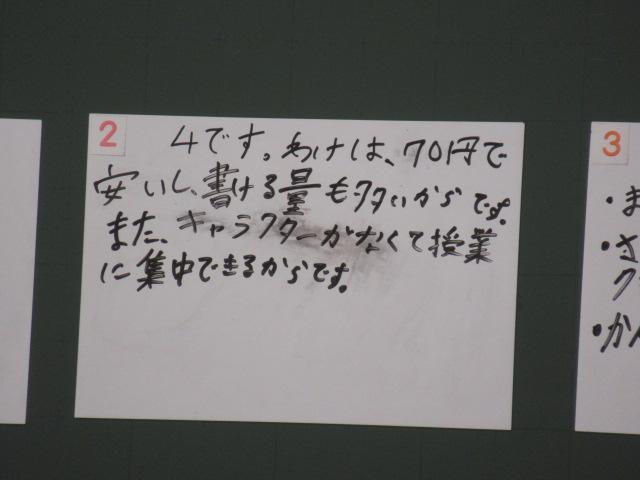 2
4です。わけは、70円で
安いし、書ける量も多いからです。
また、キャラクターがなくて授業
に集中できるからです。
3
・ま
・さ
ク
・かん